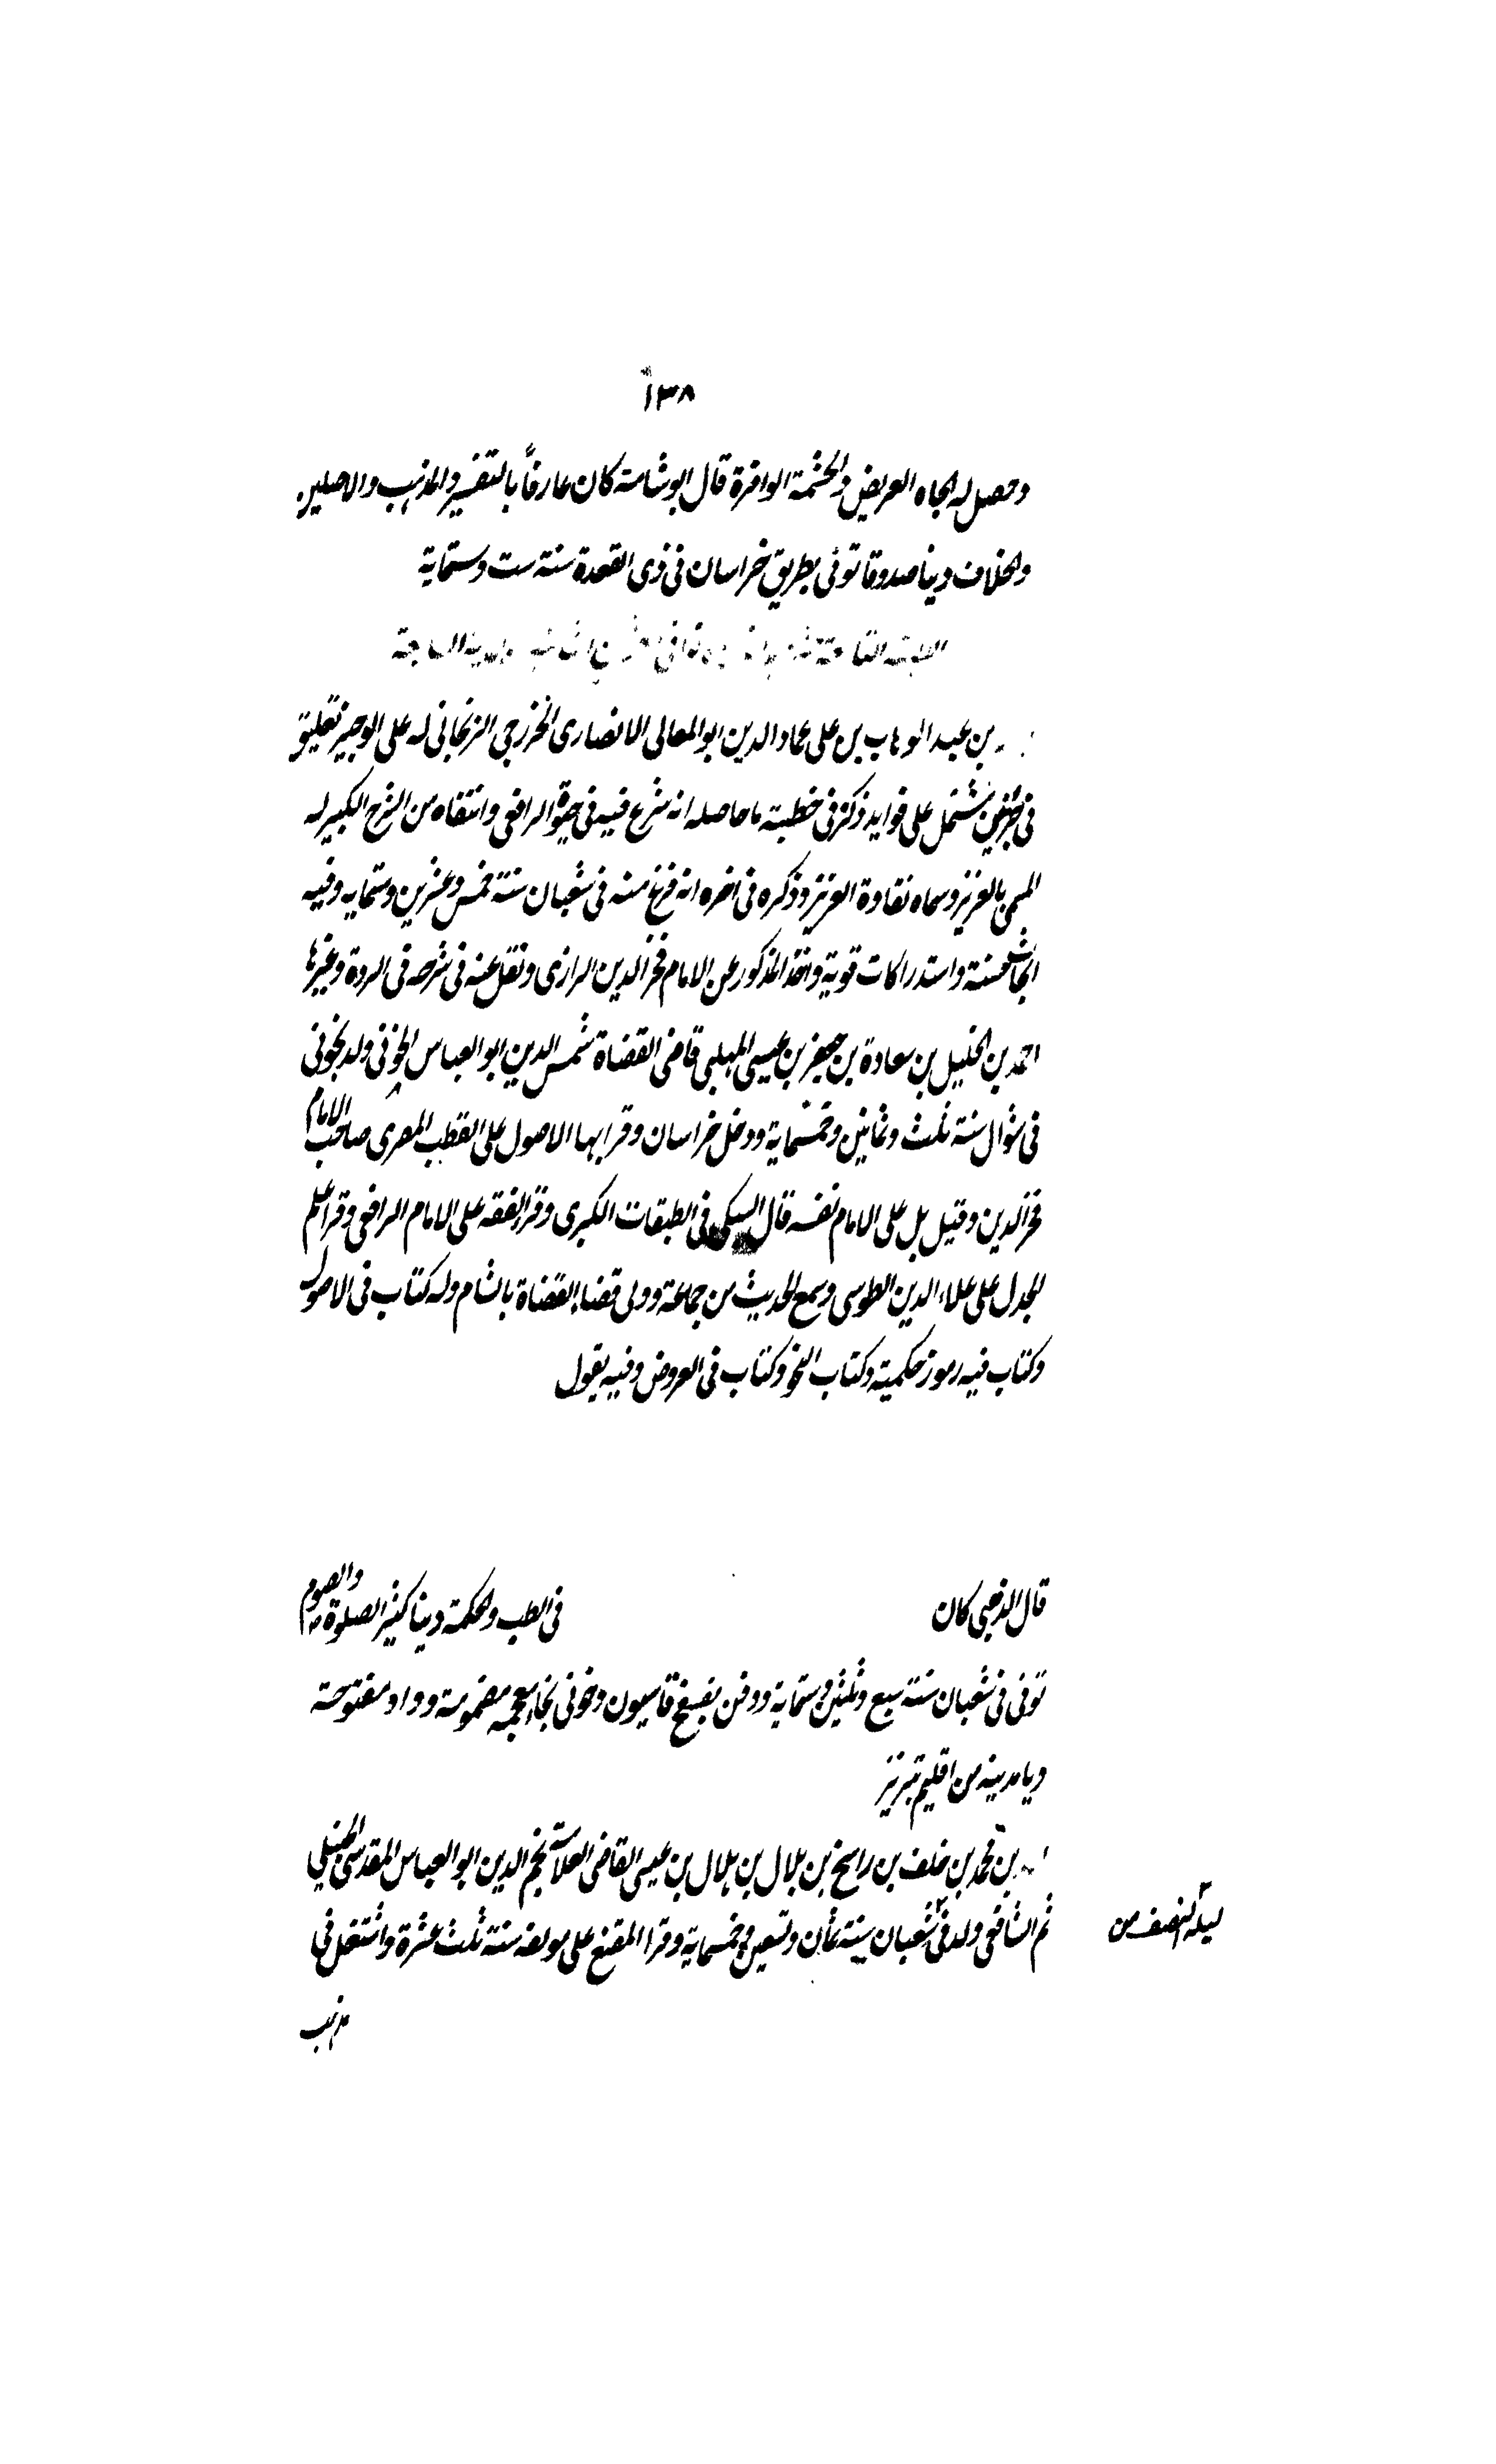 ١٣٨
وحصل له الجاه العريض والحشمة الوافرة قال ابو شامة كان عارفاً بالتفسير والمذهب والاصلين
والخلاف دينا صدوقا توفى بطريق خراسان فى ذى القعدة سنة ست وستماية
بن عبد الوهاب بن على عماد الدين ابو المعالى الانصارى الخزرجى الزنجانى له على الوجيز تعليق
فى جزئين يشتمل على فوايد ذكر فى خطبته ما حاصله انه شرع فيه فى حيوة الرافعى وانتقاه من الشرح الكبير له
المسمى بالعزيز وسماه نقاوة العزيز وذكره فى اخره انه فرغ منه فى شعبان سنة خمس وعشرين وستمايه وفيه
ابحاث حسنة واستدراكات قوية واخذ المذكور عن الامام فخر الدين الرازى ونقل عنه فى شرحه فى الردة وغيرها
احمد بن الخليل بن سعادة بن جعفر بن عيسى المهلبى قاضى القضاة شمس الدين ابو العباس الخوئى ولد بخوئى
فى شوال سنة ثلث وثمانين وخمسماية ودخل خراسان وقرا بها الاصول على القطب المصرى صاحب الامام
فخر الدين وقيل بل على الامام نفسه قال السبكى فى الطبقات الكبرى وقرا الفقه على الامام الرافعى وقرا علم
الجدل على علاء الدين الطوسى وسمع الحديث من جماعة وولى قضاء القضاة بالشام وله كتاب فى الاصول
وكتاب فيه رموز حكمية وكتاب النحو وكتاب فى العروض وفيه يقول
قال الذهبى كان فى الطب والحكمة دينا كثير الصلوة والصوم
توفى فى شعبان سنة سبع وثلثين وستماية ودفن بسفح قاسيون وخوئى بخاء معجمه مضمومة وواو مفتوحة
ويا مدينة من اقليم تبريز
بن محمد بن خلف بن راجح بن بلال بن هلال بن عيسى القاضى العلامة نجم الدين ابو العباس المقدسى الحنبلى
ثم الشافعى ولد فى شعبان سنة ثمان وتسعين وخمسماية وقرا المقنع على مولفه سنة ثلث عشرة واشتغل فى
ليلة النصف من
مذهب